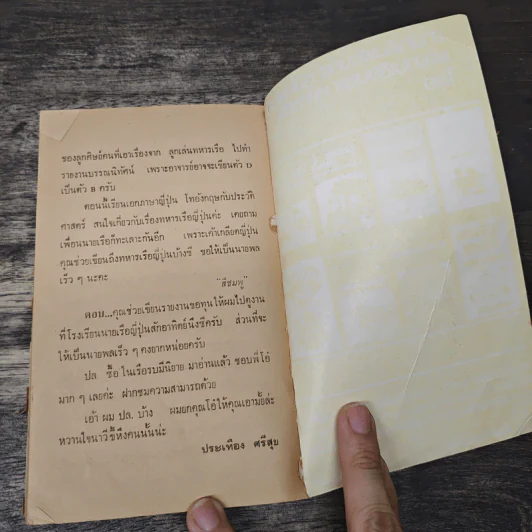 ของลูกศิษย์คนที่เอาเรื่องจาก ลูกเล่นทหารเรือ ไปทำ
รายงานบรรณนิทัศน์ เพราะอาจารย์อาจจะเขียนตัว D
เป็นตัว B ครับ
ตอนนี้เรียนเอกภาษาญี่ปุ่น โทอังกฤษกับประวัติ
ศาสตร์ สนใจเกี่ยวกับเรื่องทหารเรือญี่ปุ่นค่ะ เคยถาม
เพื่อนนายเรือก็ทะเลาะกันอีก เพราะเค้าเกลียดญี่ปุ่น
คุณช่วยเขียนถึงทหารเรือญี่ปุ่นบ้างซี ขอให้เป็นนายพล
เร็ว ๆ นะคะ
"สีชมพู"
ตอบ...คุณช่วยเขียนรายงานขอทุนให้ผมไปดูงาน
ที่โรงเรียนนายเรือญี่ปุ่นสักอาทิตย์นึงซีครับ ส่วนที่จะ
ให้เป็นนายพลเร็ว ๆ คงยากหน่อยครับ
ปล. ซื้อ ในเรือรบมีนิยาย มาอ่านแล้ว ชอบพี่โอ๋
มาก ๆ เลยค่ะ ฝากชมความสามารถด้วย
เอ้า ผม ปล. บ้าง ผมยกคุณโอ๋ให้คุณเอามั้ยล่ะ
หวานใจนาวีขี้หึงคนนั้นน่ะ
ประเทือง ศรีสุข